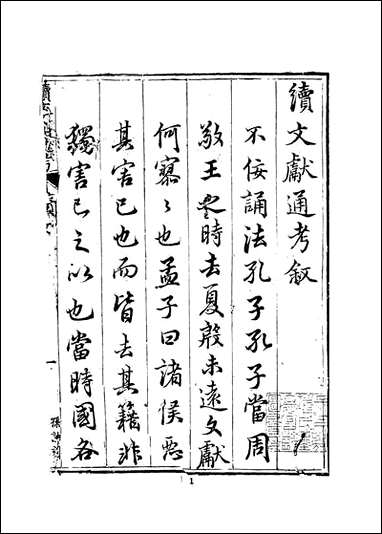 續文獻通考敘
不佞誦法孔子孔子當周
敬王之時去夏殷未遠文獻
何寥〻也孟子曰諸侯惡
其害已也而皆去其籍非
獨害已之以也當時國各
1